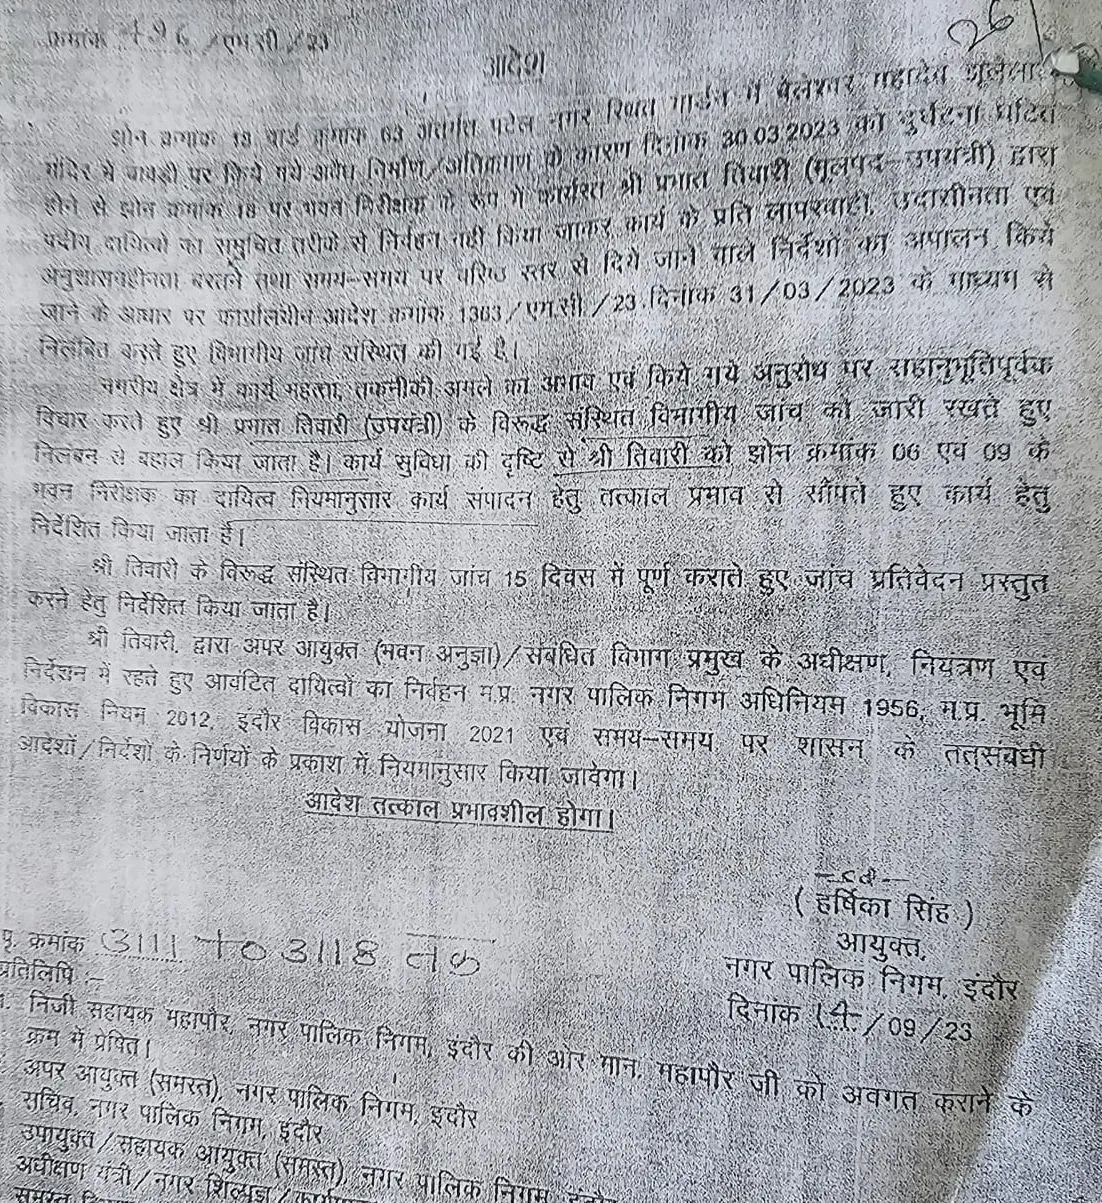 क्रमांक 796 /एम.सी./23
26
आदेश
झोन क्रमांक 18 वार्ड क्रमांक 63 अंतर्गत पटेल नगर स्थित गार्डन में बेलेश्वर महादेव झूलेलाल
मंदिर में बावडी पर किये गये अवैध निर्माण/अतिक्रमण के कारण दिनांक 30.03.2023 को दुर्घटना घटित
होने से झोन क्रमांक 18 पर भवन निरीक्षक के रूप में कार्यरत श्री प्रभात तिवारी (मूलपद–उपयंत्री) द्वारा
पदीय दायित्वो का समुचित तरीके से निर्वहन नहीं किया जाकर कार्य के प्रति लापरवाही, उदासीनता एवं
अनुशासनहीनता बरतने तथा समय–समय पर वरिष्ठ स्तर से दिये जाने वाले निर्देशों का अपालन किये
जाने के आधार पर कार्यालयीन आदेश क्रमांक 1363/एम.सी./23 दिनांक 31/03/2023 के माध्यम से
निलंबित करते हुए विभागीय जांच संस्थित की गई है।
नगरीय क्षेत्र में कार्य महत्ता, तकनीकी अमले का अभाव एवं किये गये अनुरोध पर सहानुभूतिपूर्वक
विचार करते हुए श्री प्रभात तिवारी (उपयंत्री) के विरूद्ध संस्थित विभागीय जांच को जारी रखते हुए
निलंबन से बहाल किया जाता है। कार्य सुविधा की दृष्टि से श्री तिवारी को झोन क्रमांक 06 एवं 09 के
भवन निरीक्षक का दायित्व नियमानुसार कार्य संपादन हेतु तत्काल प्रभाव से सौंपते हुए कार्य हेतु
निर्देशित किया जाता है।
श्री तिवारी के विरूद्ध संस्थित विभागीय जांच 15 दिवस में पूर्ण कराते हुए जांच प्रतिवेदन प्रस्तुत
करने हेतु निर्देशित किया जाता है।
श्री तिवारी, द्वारा अपर आयुक्त (भवन अनुज्ञा)/संबंधित विभाग प्रमुख के अधीक्षण, नियंत्रण एवं
निर्देशन में रहते हुए आवंटित दायित्वों का निर्वहन म.प्र. नगर पालिक निगम अधिनियम 1956, म.प्र. भूमि
विकास नियम 2012, इंदौर विकास योजना 2021 एवं समय–समय पर शासन के तत्संबंधी
आदेशों/निर्देशों के निर्णयों के प्रकाश में नियमानुसार किया जावेगा।
आदेश तत्काल प्रभावशील होगा।
–sd–
( हर्षिका सिंह )
आयुक्त,
नगर पालिक निगम, इंदौर
दिनांक 14/09/23
पृ. क्रमांक 3111 to 3118 तक
प्रतिलिपि :–
1. निजी सहायक महापौर, नगर पालिक निगम, इंदौर की ओर मान. महापौर जी को अवगत कराने के
क्रम में प्रेषित।
अपर आयुक्त (समस्त), नगर पालिक निगम, इंदौर
सचिव, नगर पालिक निगम, इंदौर
उपायुक्त/सहायक आयुक्त (समस्त), नगर पालिक निगम, इंदौर
अधीक्षण यंत्री/नगर शिल्पज्ञ/
समस्त